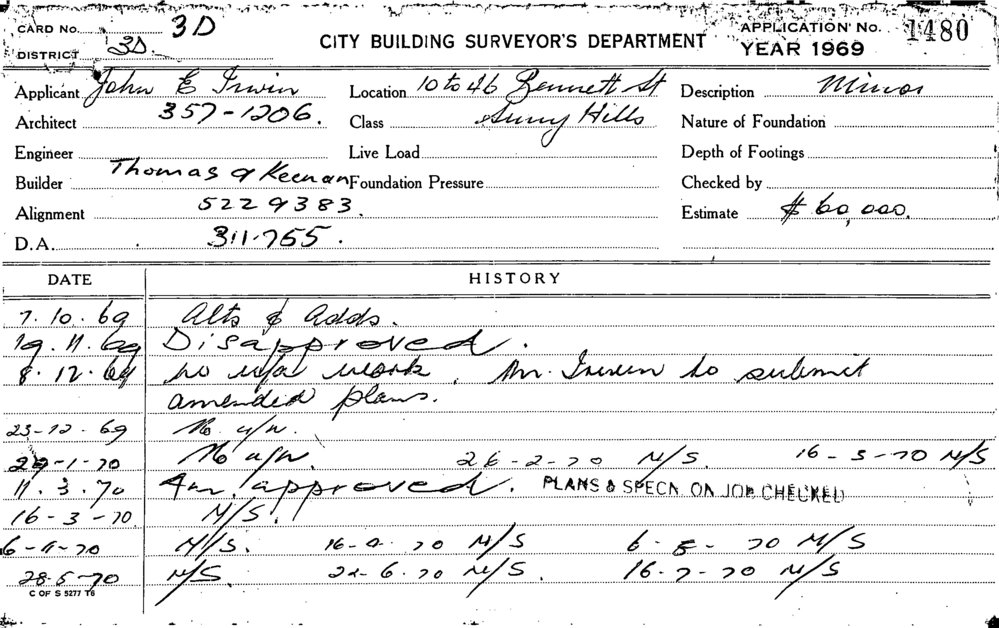 CARD No. 3D
DISTRICT 3D.
CITY BUILDING SURVEYOR'S DEPARTMENT
APPLICATION No. 1480
YEAR 1969
Applicant John E Irwin Location 10 to 46 Bennett St Description Minor
Architect 357-1206. Class Surry Hills Nature of Foundation
Engineer Live Load Depth of Footings
Builder Thomas & Keenan Foundation Pressure Checked by
Alignment 5229383. Estimate $60,000.
D.A. 311.755.
DATE HISTORY
7.10.69 Alts & Adds.
19.11.69 Disapproved.
8.12.69 no u/a work. Mr. Irwin to submit
amended plans.
23-12-69 No u/w.
29-1-70 No u/w. 26-2-70 N/S. 16-3-70 N/S
11.3.70 Am. approved. PLANS & SPECN. ON JOB CHECKED
16-3-70. N/S.
6-4-70 N/S. 16-4-70 N/S 6-5-70 N/S
28-5-70 N/S. 22-6-70 N/S. 16-7-70 N/S
C OF S 5277 T8